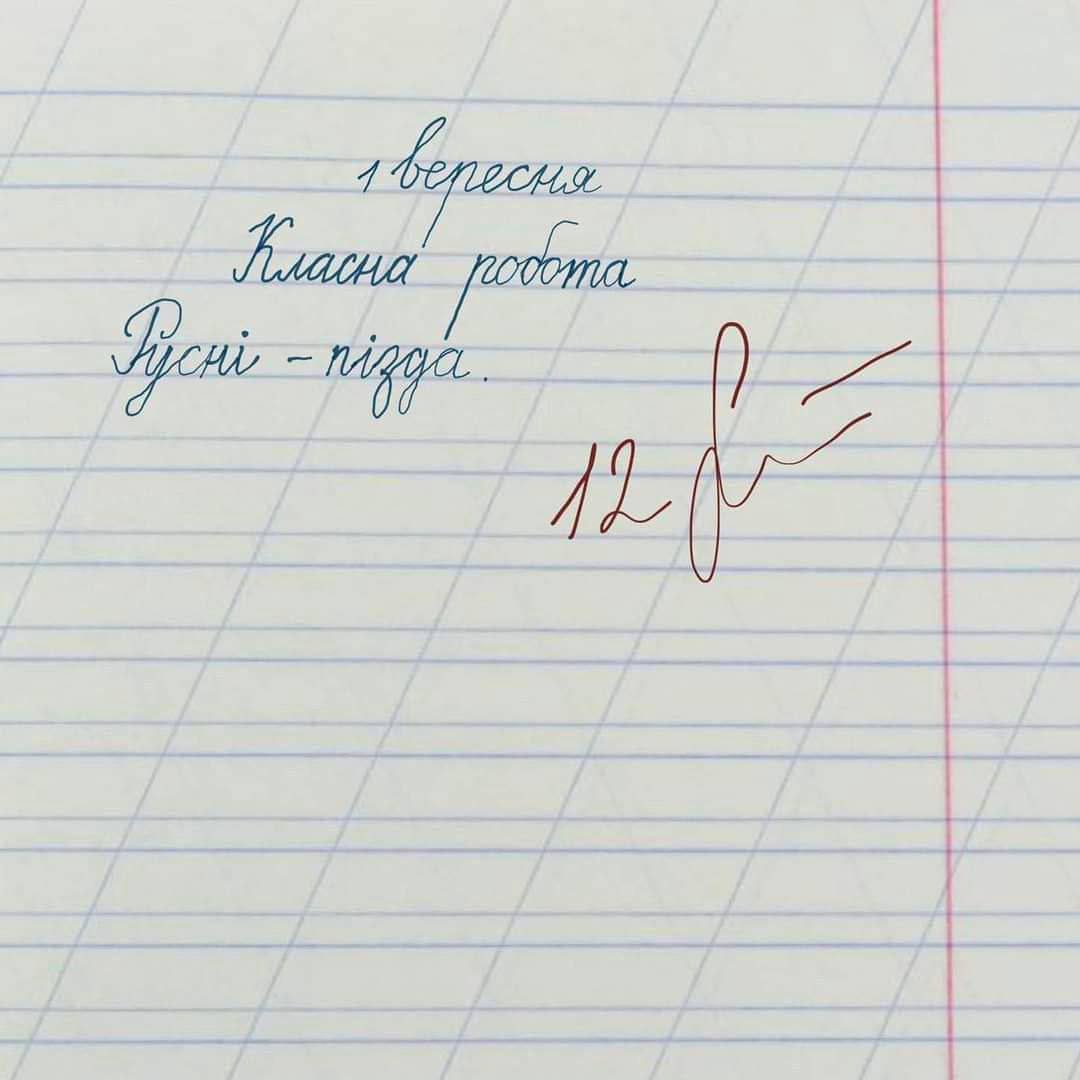 1 вересня
Класна робота
Русні - пізда.
12